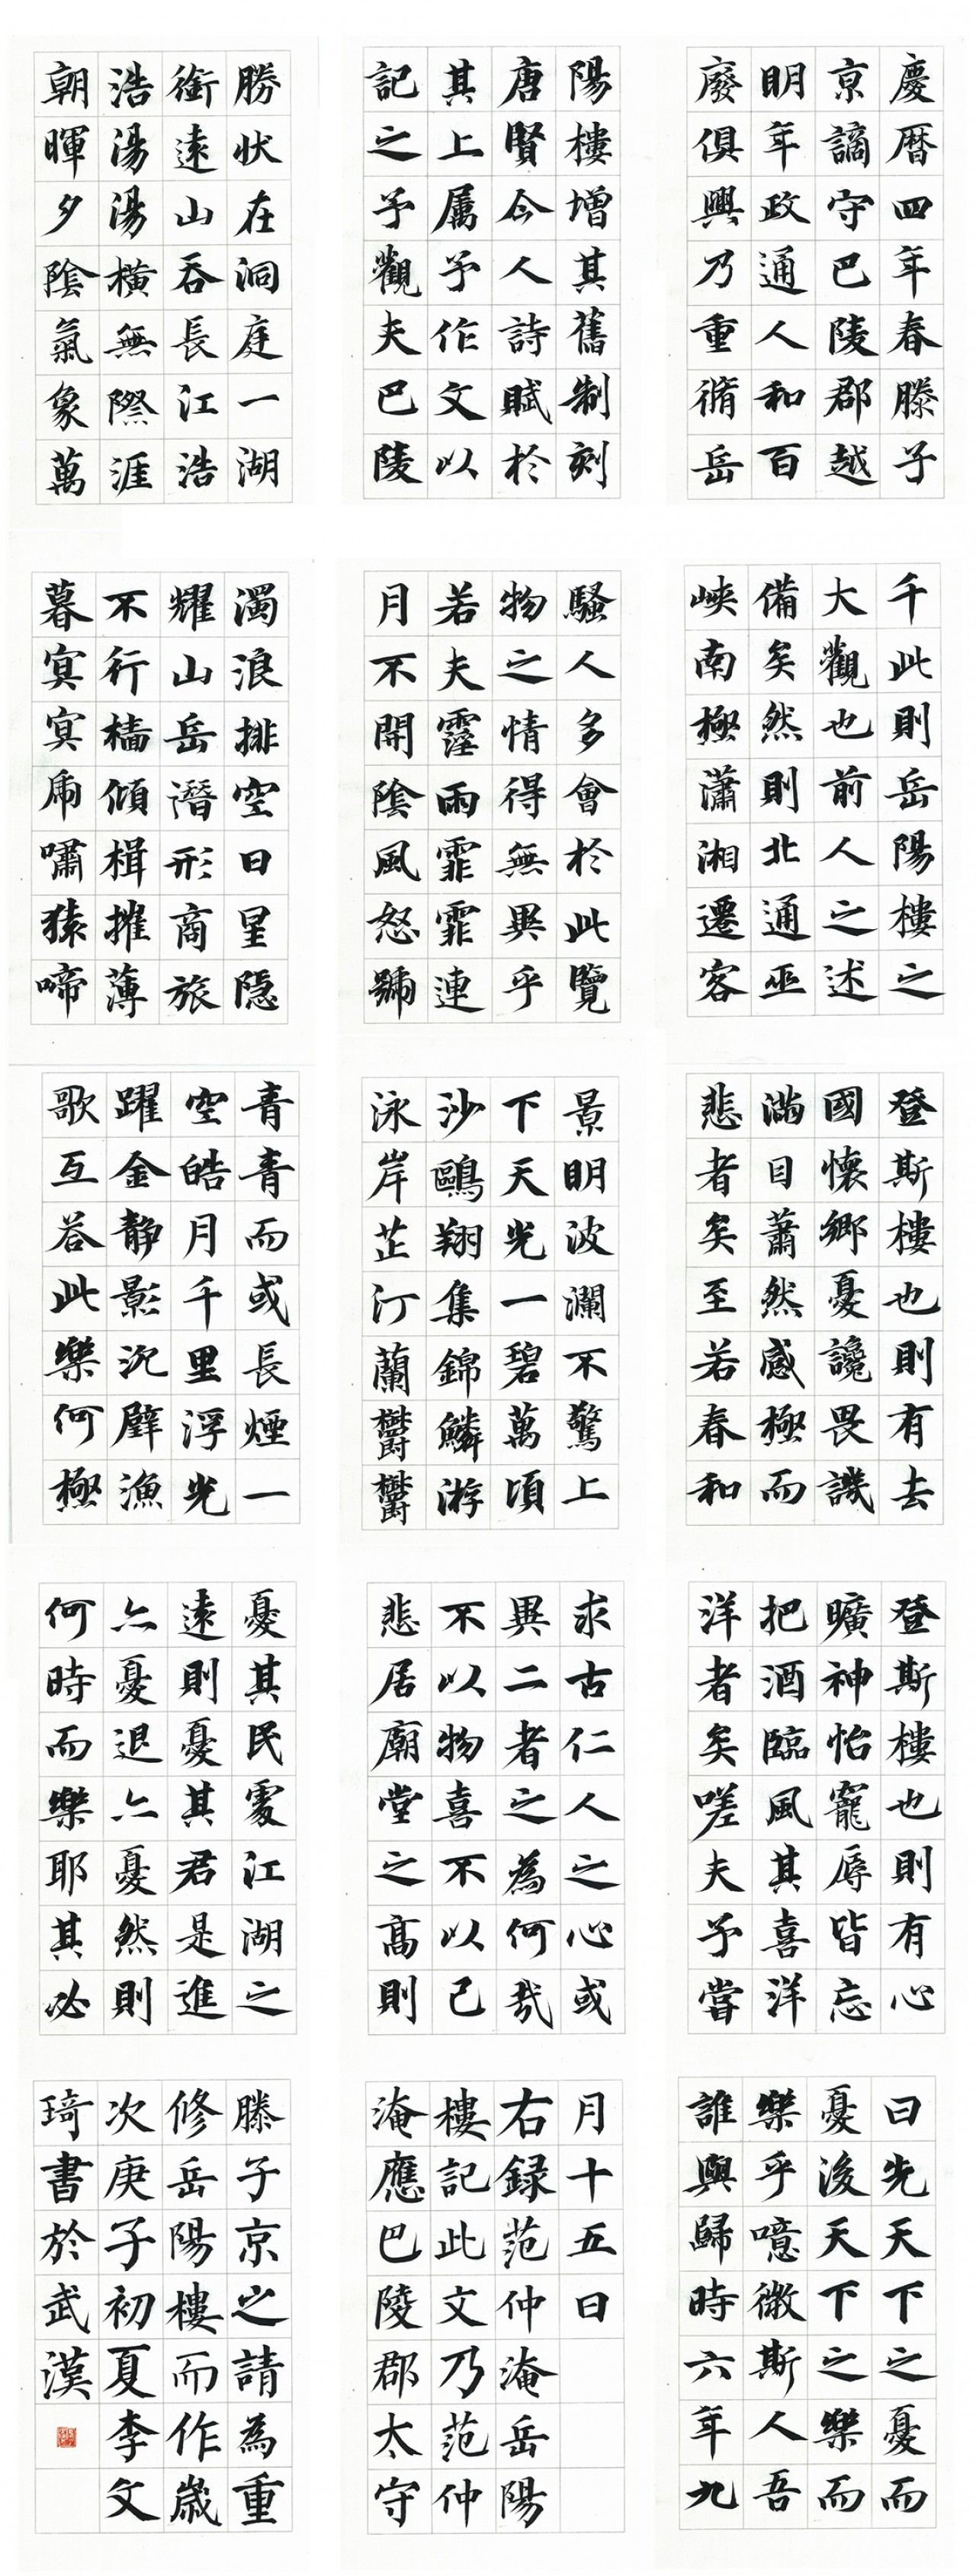 慶曆四年春滕子
京謫守巴陵郡越
明年政通人和百
廢俱興乃重脩岳
陽樓增其舊制刻
唐賢今人詩賦於
其上属予作文以
記之予觀夫巴陵
勝狀在洞庭一湖
銜遠山吞長江浩
浩湯湯橫無際涯
朝暉夕陰氣象萬
千此則岳陽樓之
大觀也前人之述
備矣然則北通巫
峽南極瀟湘遷客
騷人多會於此覽
物之情得無異乎
若夫霪雨霏霏連
月不開陰風怒號
濁浪排空日星隱
耀山岳潛形商旅
不行檣傾楫摧薄
暮冥冥虎嘯猿啼
登斯樓也則有去
國懷鄉憂讒畏譏
滿目蕭然感極而
悲者矣至若春和
景明波瀾不驚上
下天光一碧萬頃
沙鷗翔集錦鱗游
泳岸芷汀蘭鬱鬱
青青而或長煙一
空皓月千里浮光
躍金静影沉璧漁
歌互答此樂何極
登斯樓也則有心
曠神怡寵辱皆忘
把酒臨風其喜洋
洋者矣嗟夫予嘗
求古仁人之心或
異二者之為何哉
不以物喜不以己
悲居廟堂之高則
憂其民處江湖之
遠則憂其君是進
亦憂退亦憂然則
何時而樂耶其必
曰先天下之憂而
憂後天下之樂而
樂乎噫微斯人吾
誰與歸時六年九
月十五日
右録范仲淹岳陽
樓記此文乃范仲
淹應巴陵郡太守
滕子京之請為重
修岳陽樓而作歲
次庚子初夏李文
琦書於武漢